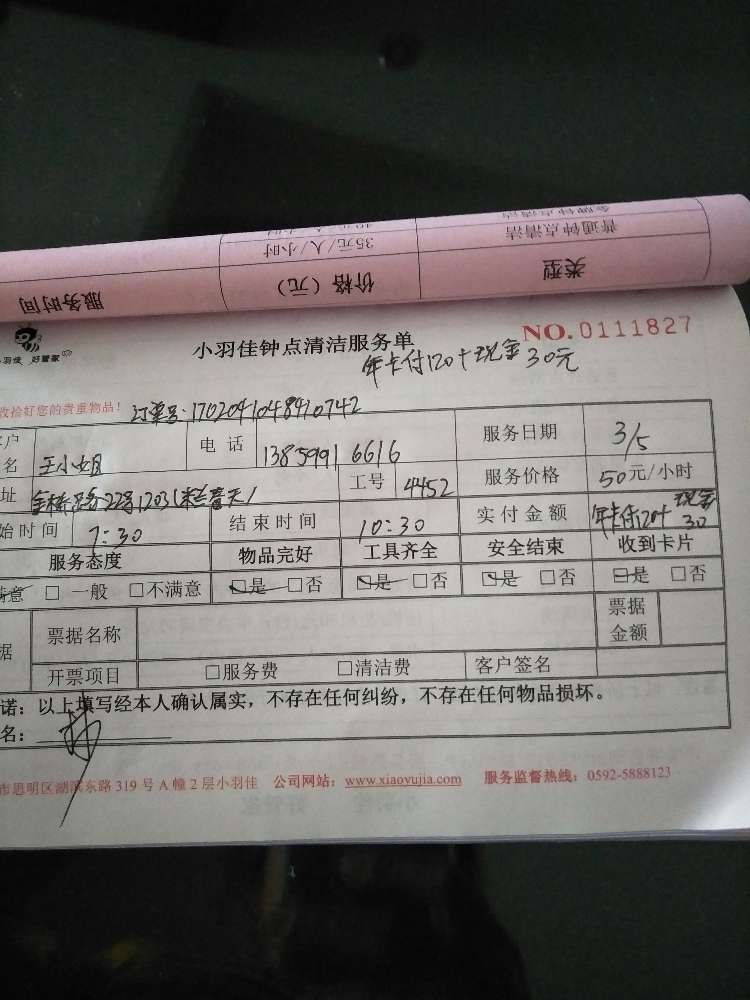 金牌钟点清洁
普通钟点清洁 35元/人/小时
类型 价格（元） 服务时间
小羽佳 好管家
小羽佳钟点清洁服务单
NO.0111827
年卡付120+现金30元
收拾好您的贵重物品！ 订单号:1702041048410742
客户名 王小姐 电话 13859916616 服务日期 3/5
址 金桥路 22号1203 工号 4452 服务价格 50元/小时
始时间 7:30 结束时间 10:30 实付金额 年卡付120+现金30
服务态度 物品完好 工具齐全 安全结束 收到卡片
满意 □ 一般 □不满意 □是 □否 □是 □否 □是 □否 □是 □否
据 票据名称 票据金额
开票项目 □服务费 □清洁费 客户签名
诺：以上填写经本人确认属实，不存在任何纠纷，不存在任何物品损坏。
名：
市思明区湖滨东路 319 号 A 幢 2 层小羽佳 公司网站：www.xiaoyujia.com 服务监督热线：0592-5888123